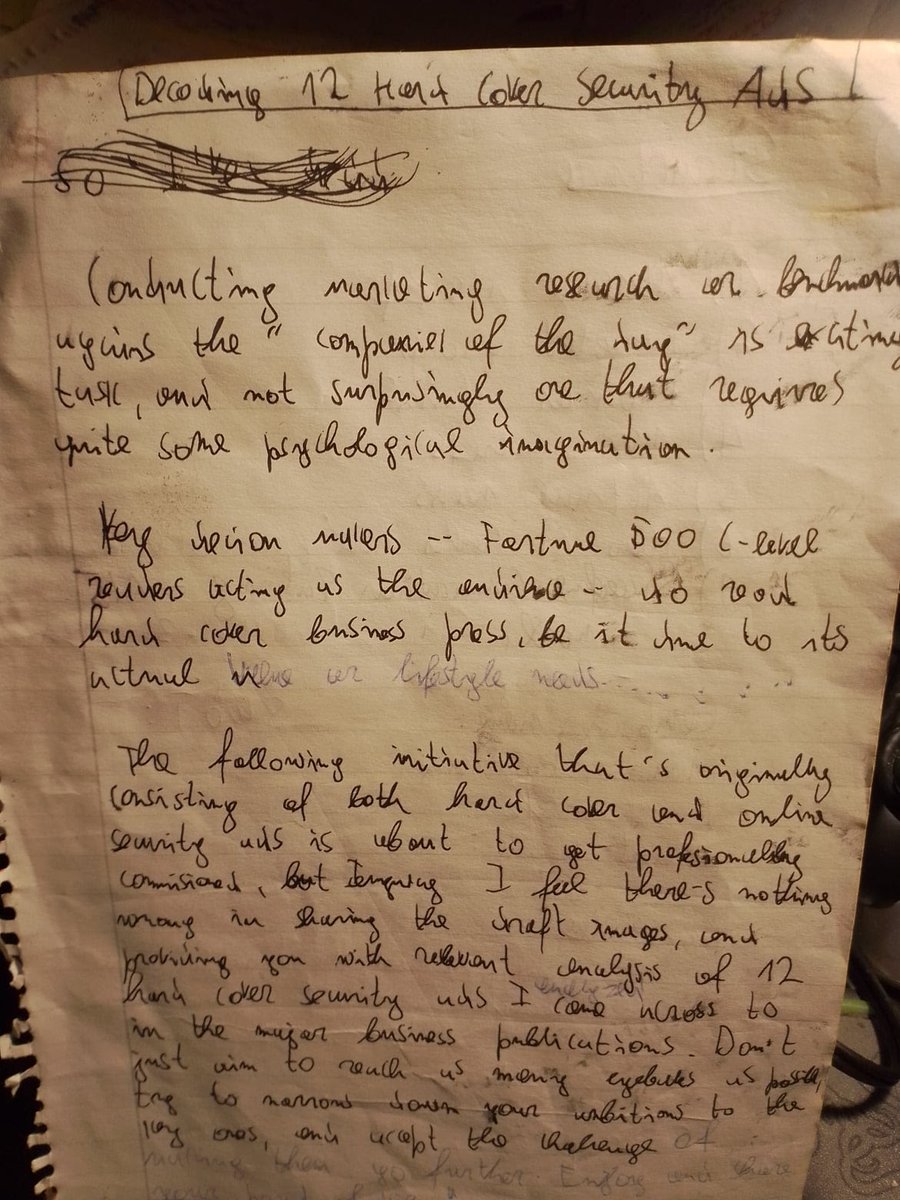 Decoding 12 Hard Cover Security Ads
so I've
Conducting marketing research or benchmark
agains the "companies of the day" is exciting
task, and not surprisingly one that requires
quite some psychological imagination.
Key decion makers -- Fortune 500 C-level
readers acting as the audience -- do read
hard cover business press, be it due to its
actual value or lifestyle needs
The following initiative that's originally
consisting of both hard cover and online
security ads is about to get professionally
commisioned, but I feel there's nothing
wrong in sharing the draft images, and
providing you with relevant analysis of 12
hard cover security ads I came across to
in the major business publications. Don't
just aim to reach as many eyeballs as possible,
try to narrow down your ambitions to the
key ones, and accept the challenge of
making them go further. Enjoy and share